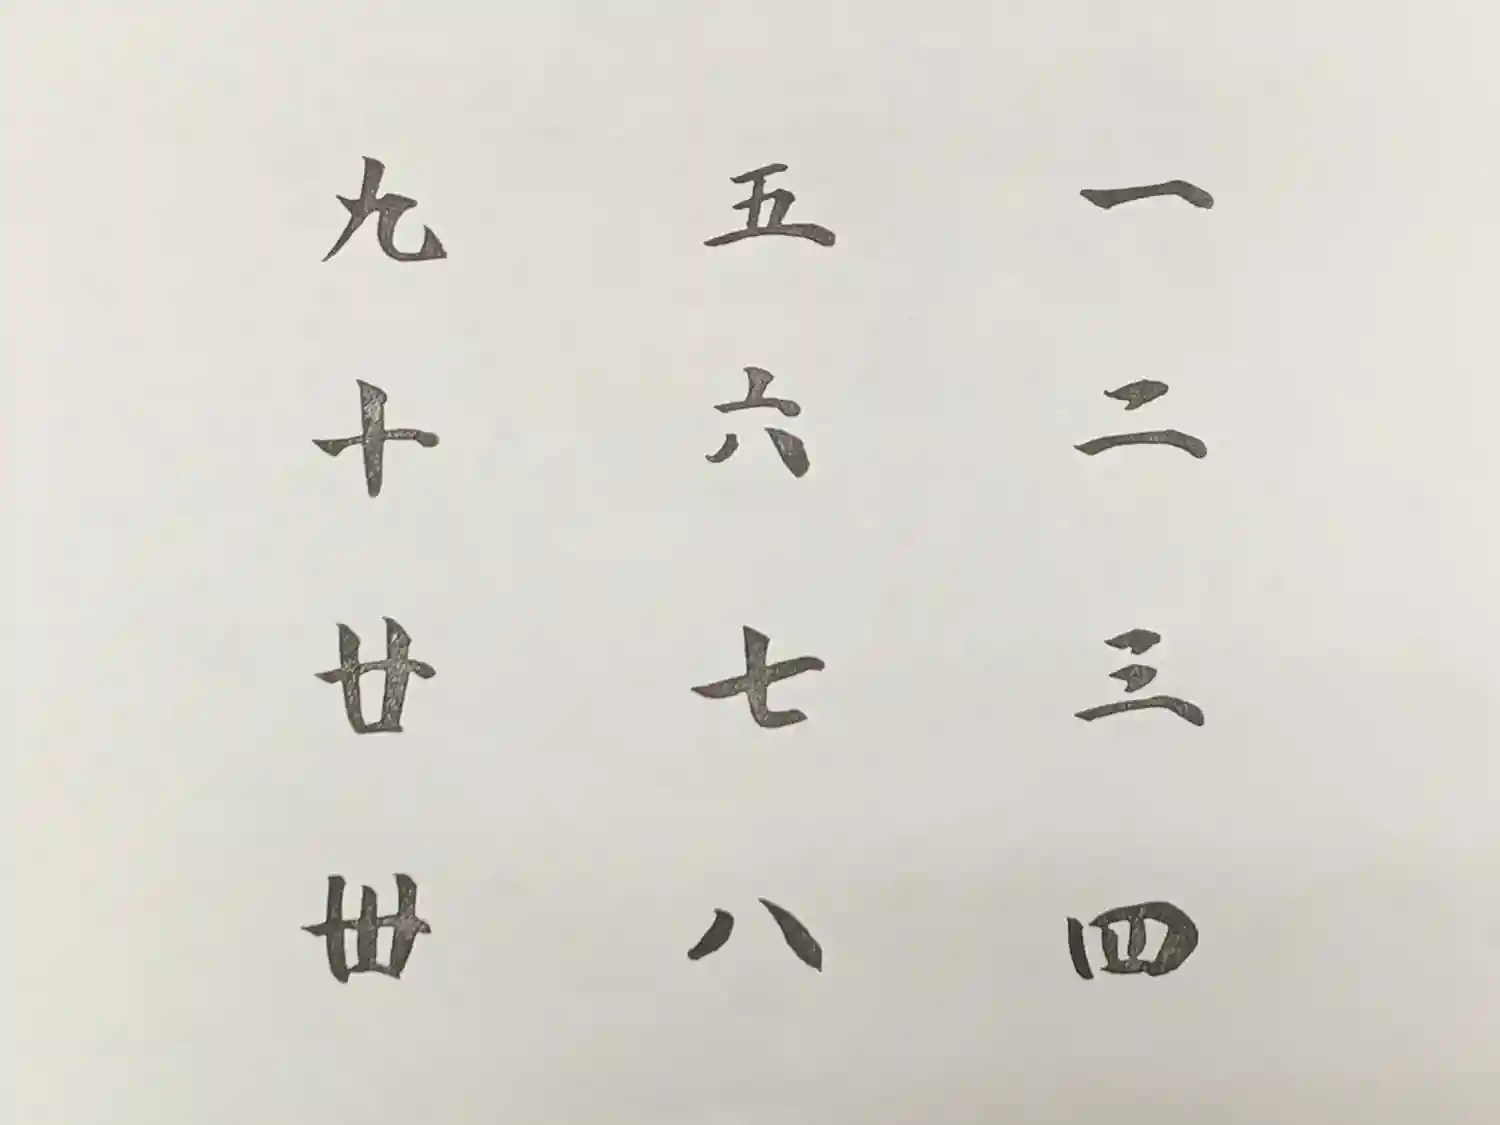 一二三四
五六七八
九十廿卅